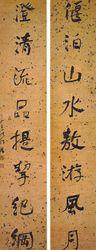 偃泊山水敖游風月
澄清流品提挈紀綱